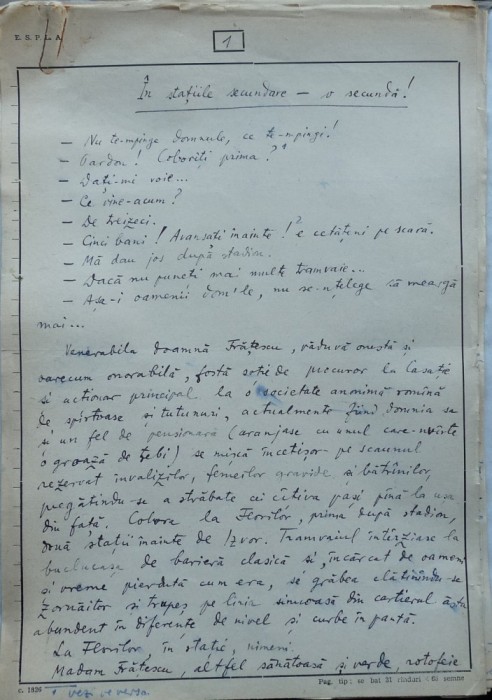 E. S. P. L. A.
1
În stațiile secundare — o secundă!
— Nu te-mpinge domnule, ce te-mpingi!
— Pardon! Coborîți prima?
— Dați-mi voie...
— Ce vine-acum?
— De treizeci.
— Cinci bani! Avansați înainte! e cetățeni pe scară.
— Mă dau jos după stadion.
— Dacă nu puneti mai multe tramvaie...
— Așa-i oamenii dom'le, nu se-nțelege să meargă
mai...
Venerabila doamnă Frățescu, văduvă onestă și
oarecum onorabilă, fostă soție de procuror la Casație
și acționar principal la o societate anonimă romînă
de spirtoase și tutunuri, actualmente fiind domnia sa
și un fel de pensionară (aranjase cu unul care-nvîrte
o groază de țebi) se mișcă încetișor pe scaunul
rezervat invalizilor, femeilor gravide și bătrînilor,
pregătindu-se a străbate cei cîțiva pași pînă la ușa
din față. Cobora la Florilor, prima după stadion,
două stații înainte de Izvor. Tramvaiul întîrziase la
buclucașa de barieră clasică și, încărcat de oameni
și vreme pierdută cum era, se grăbea clătinîndu-se
zornăitor și trupeș pe linia sinuoasă din cartierul ăsta
abundent în diferențe de nivel și curbe în pantă.
La Florilor, în stație, nimeni.
Madam Frățescu, altfel sănătoasă și verde, rotofeie
c. 1826
vezi verso
Pag. tip: se bat 31 rînduri a 60 semne